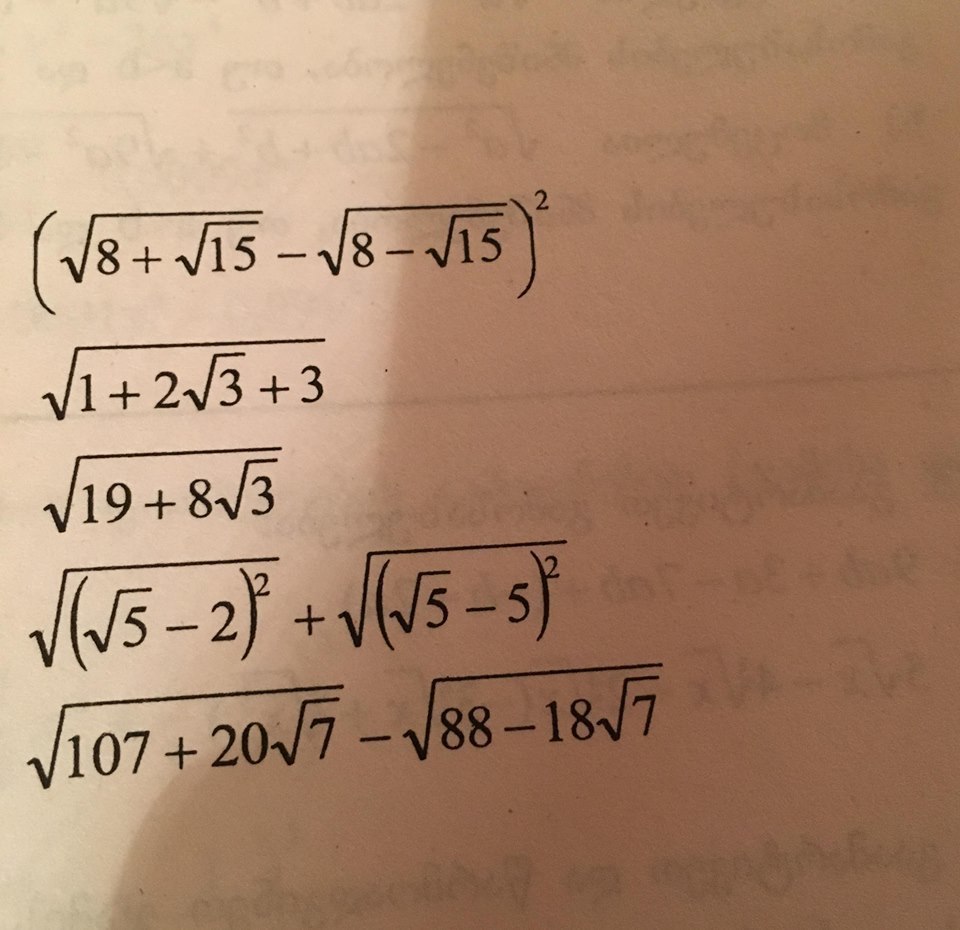 (√(8 + √15) − √(8 − √15))²
√(1 + 2√3 + 3)
√(19 + 8√3)
√((√5 − 2)²) + √((√5 − 5)²)
√(107 + 20√7) − √(88 − 18√7)